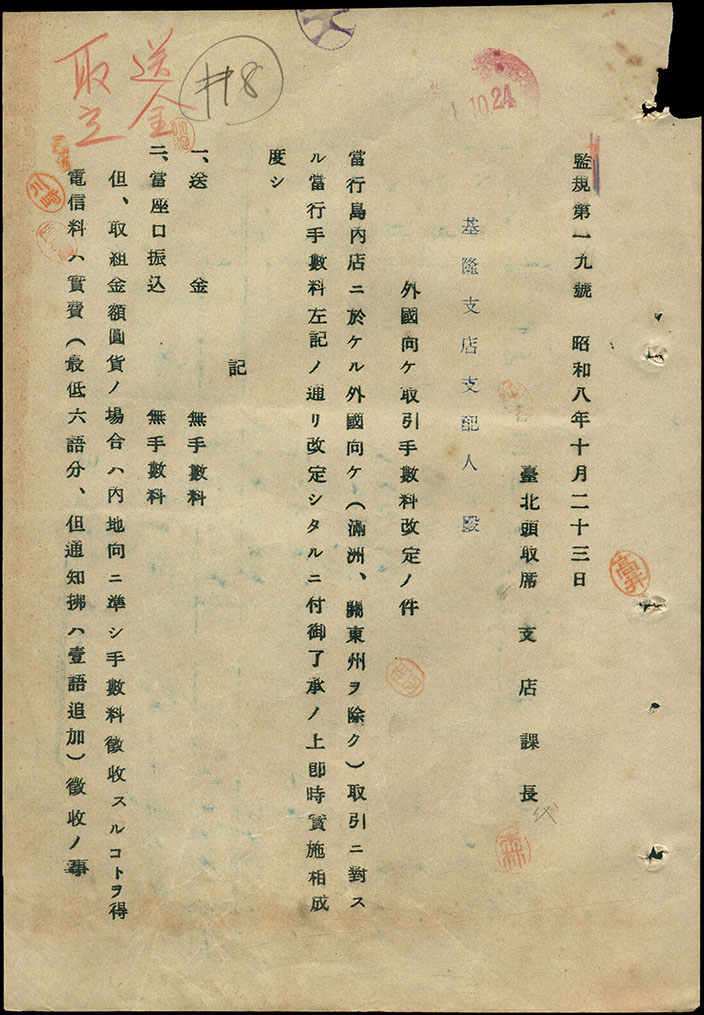 監規第一九號　昭和八年十月二十三日
臺北頭取席　支店課長
基隆支店支配人殿
外國向ケ取引手數料改定ノ件
當行島內店ニ於ケル外國向ケ（滿洲、關東州ヲ除ク）取引ニ對ス
ル當行手數料左記ノ通リ改定シタルニ付御了承ノ上即時實施相成
度シ
記
一、送　　金　　　無手數料
二、當座口振込　　無手數料
但、取組金額圓貨ノ場合ハ內地向ニ準シ手數料徵收スルコトヲ得
電信料ハ實費（最低六語分、但通知拂ハ壹語追加）徵收ノ事
送金
取立
#8
10.24
川崎
高井